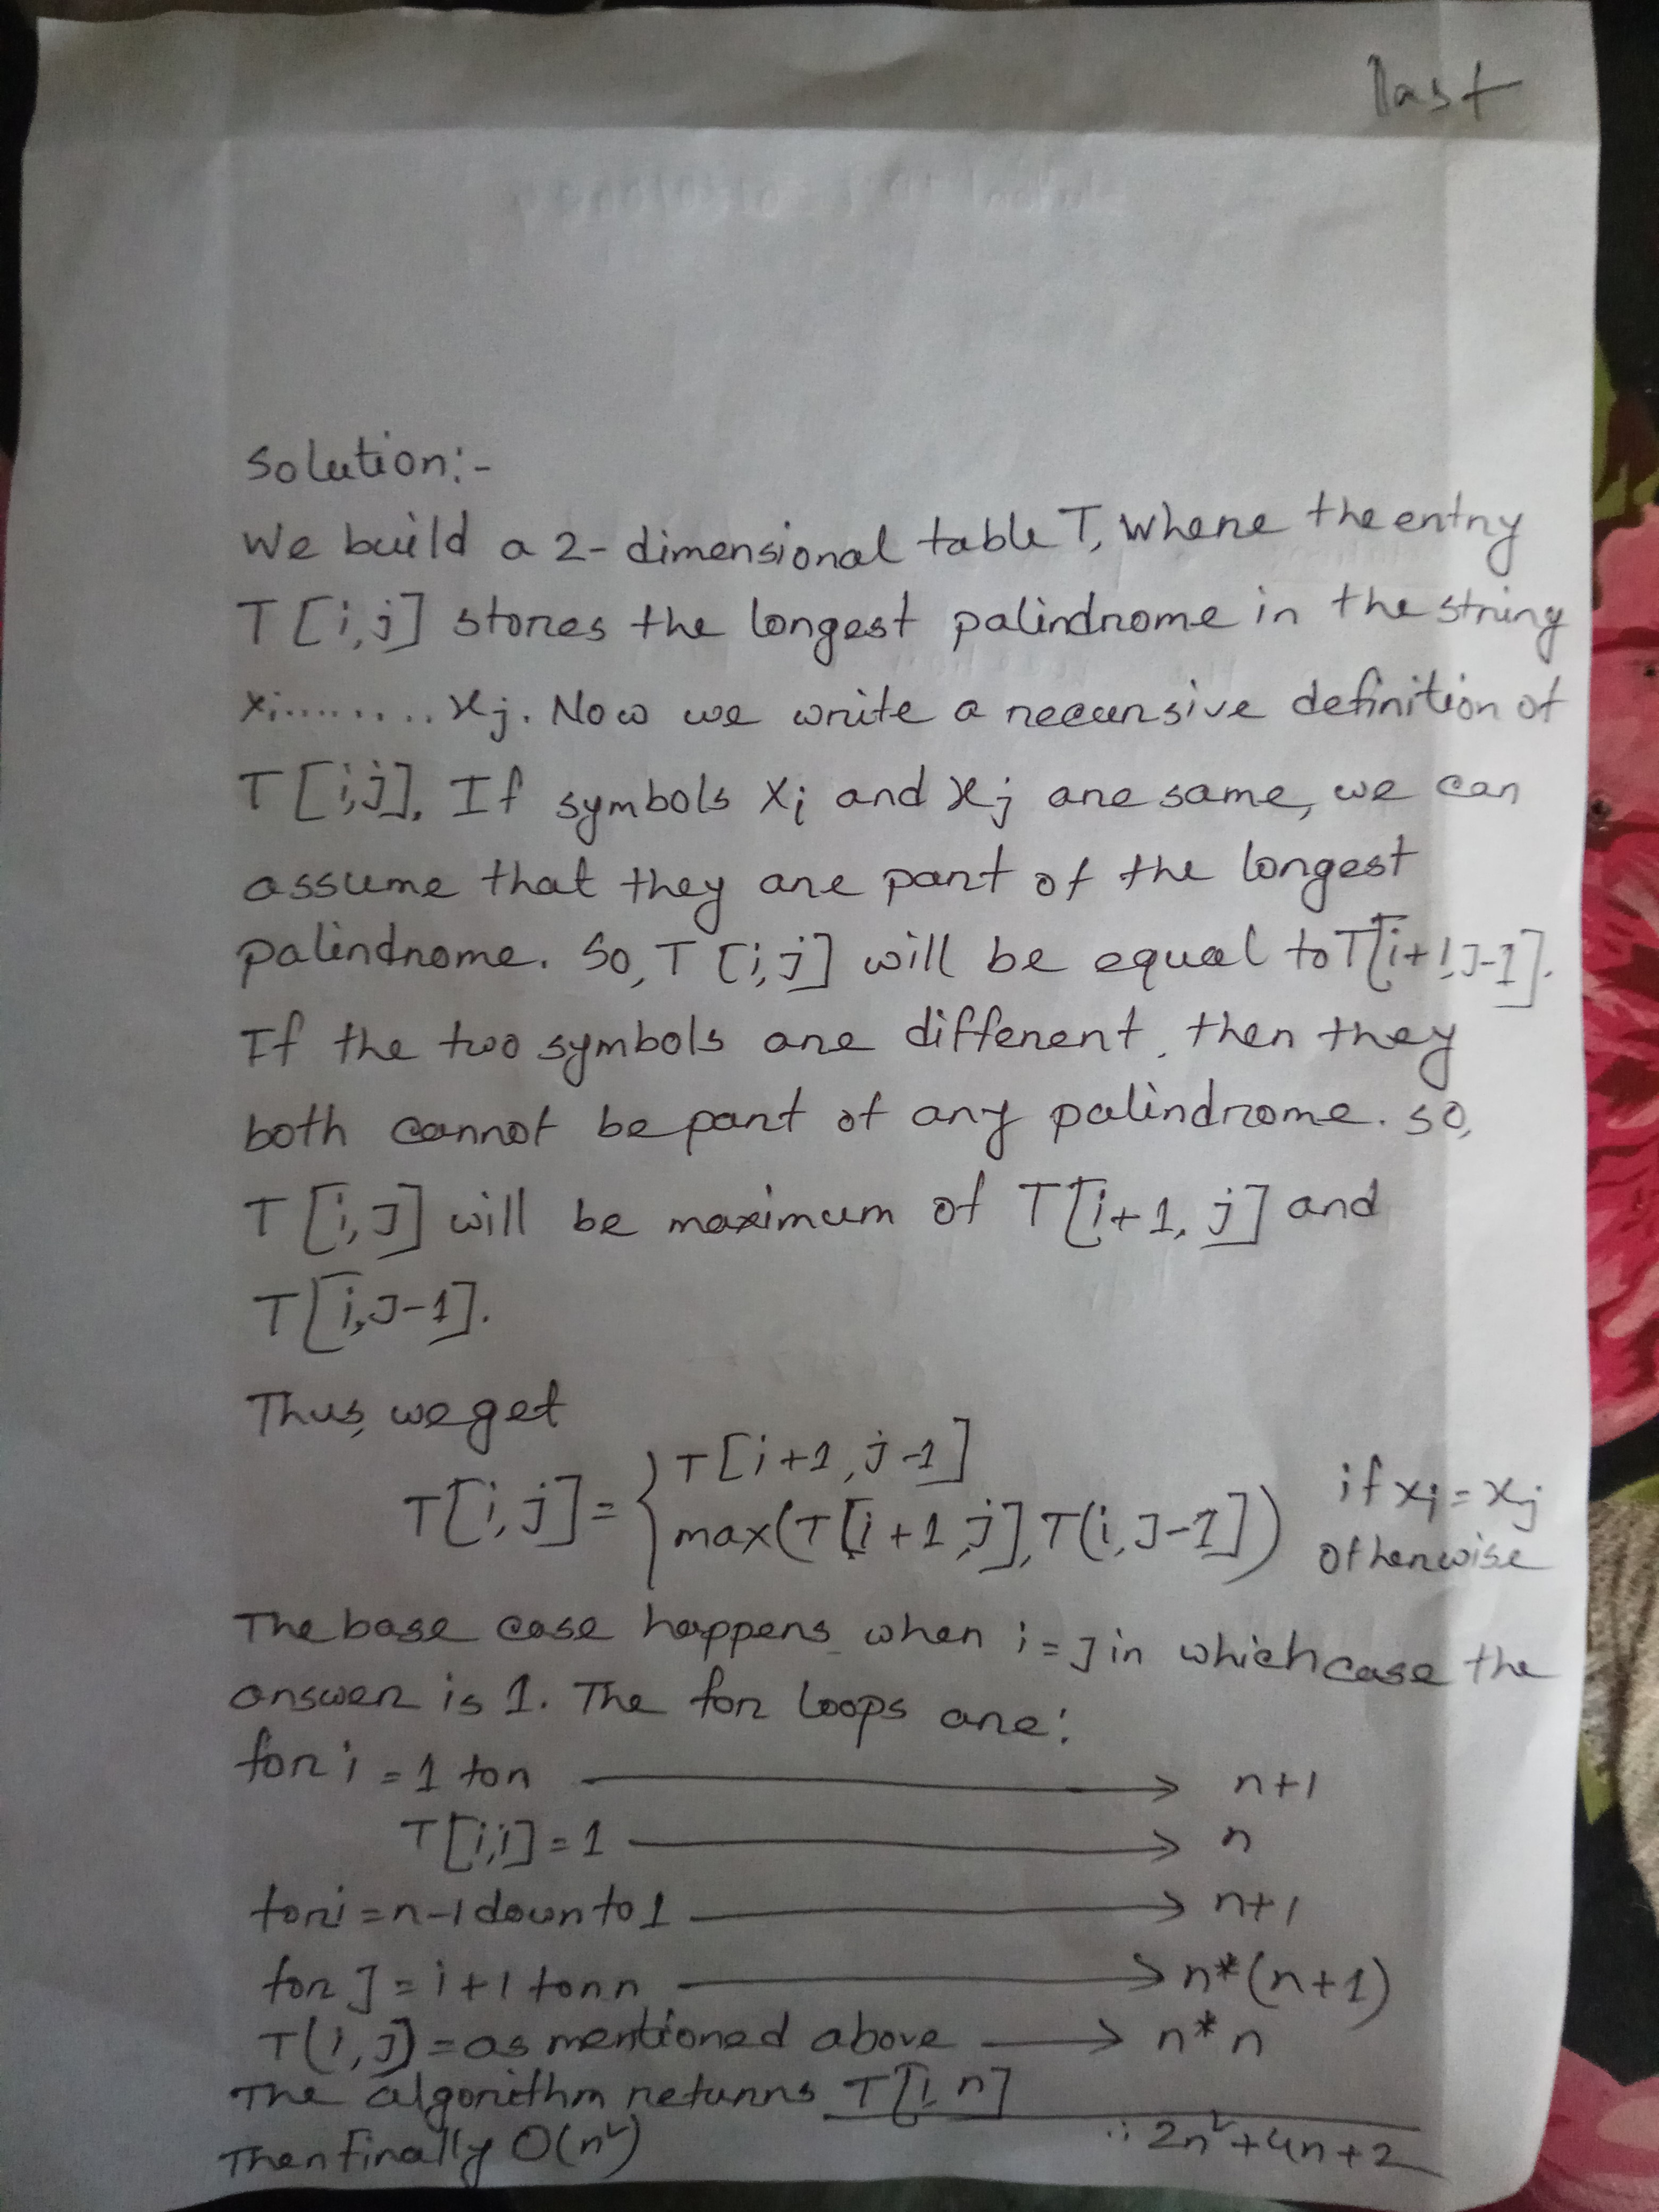 last
Solution:-
We build a 2-dimensional table T, where the entry
T[i,j] stores the longest palindrome in the string
xi......... xj. Now we write a recursive definition of
T[i,j]. If symbols xi and xj are same, we can
assume that they are part of the longest
palindrome. So, T[i,j] will be equal to T[i+1,J-1].
If the two symbols are different, then they
both cannot be part of any palindrome. so,
T[i,J] will be maximum of T[i+1, j] and
T[i,J-1].
Thus, we get
T[i,j] = { T[i+1,j-1] if xi = xj
max(T[i+1,j],T(i,J-1]) otherwise
The base case happens when i=J in which case the
answer is 1. The for loops are:
for i = 1 to n → n+1
T[i,i] = 1 → n
for i = n-1 down to 1 → n+1
for J = i+1 to n n → n*(n+1)
T(i,J) = as mentioned above → n*n
The algorithm returns T[1, n]
Then finally O(n²) ∴ 2n²+4n+2